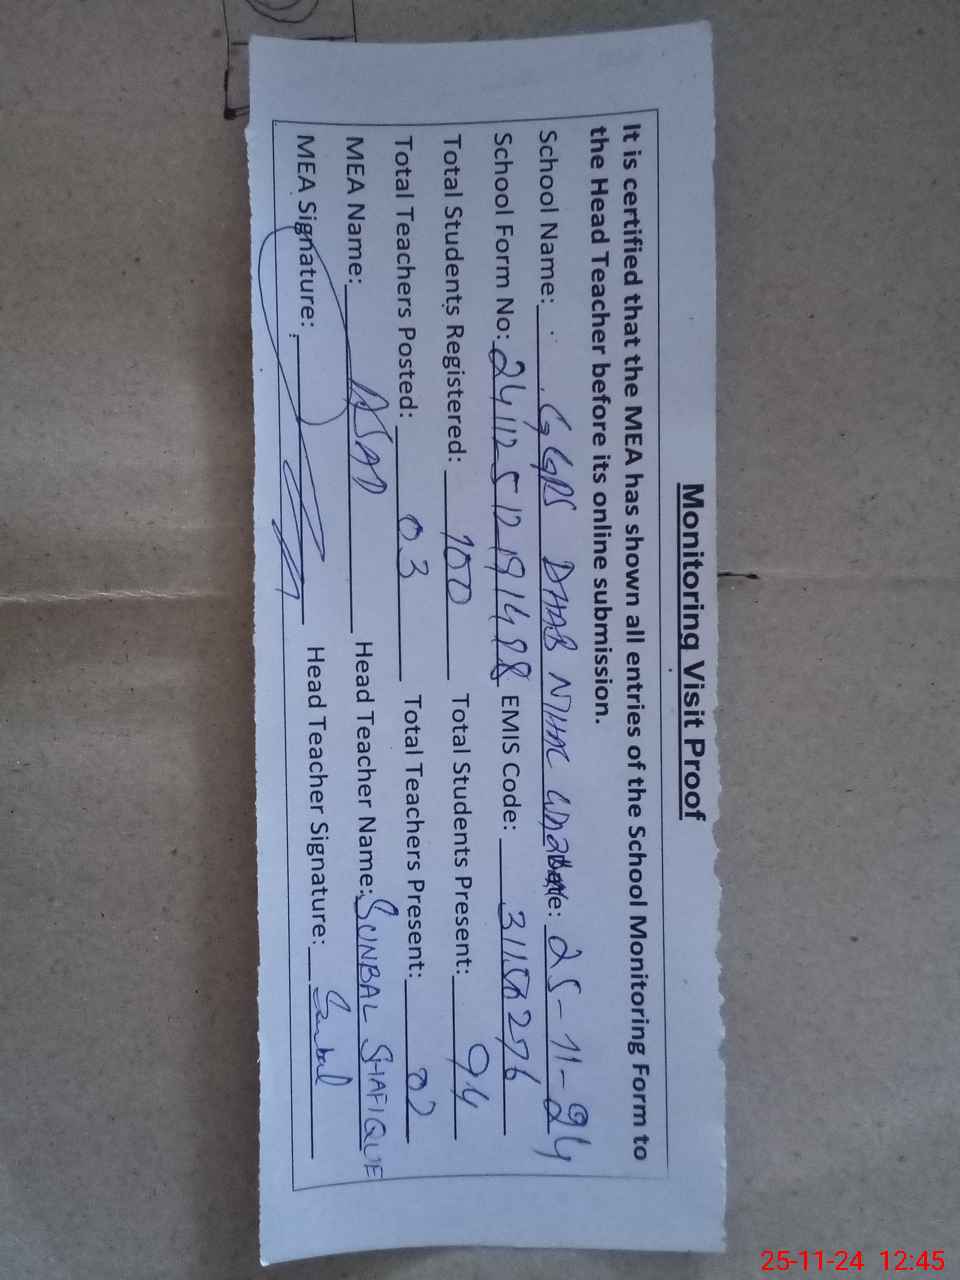 Monitoring Visit Proof
It is certified that the MEA has shown all entries of the School Monitoring Form to
the Head Teacher before its online submission.
School Name: GGPS DHAB NIHAL Date: 25-11-24
School Form No: EMIS Code:
Total Students Registered: 100 Total Students Present: 94
Total Teachers Posted: 03 Total Teachers Present: 02
MEA Name: ASAD Head Teacher Name: SUNBAL SHAFIQUE
MEA Signature: Head Teacher Signature: Sunbal
25-11-24 12:45